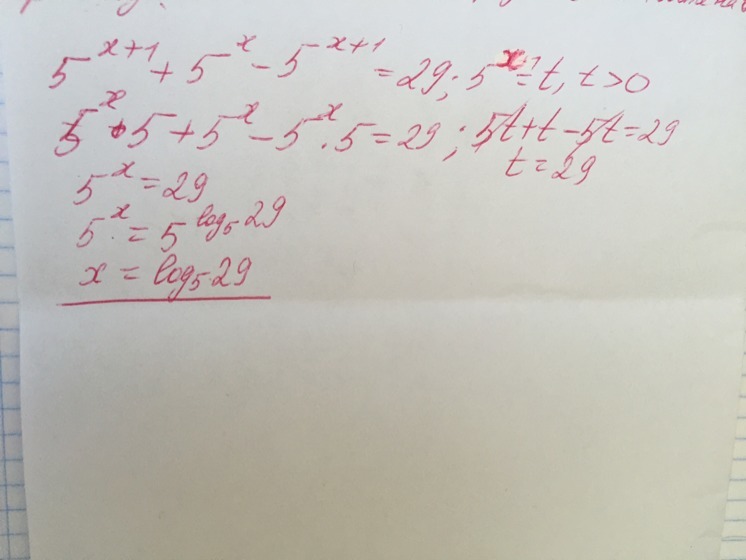 5^{x+1} + 5^x - 5^{x+1} = 29; 5^x = t, t > 0
5^x · 5 + 5^x - 5^x · 5 = 29; 5t + t - 5t = 29
t = 29
5^x = 29
5^x = 5^{log_5 29}
x = log_5 29